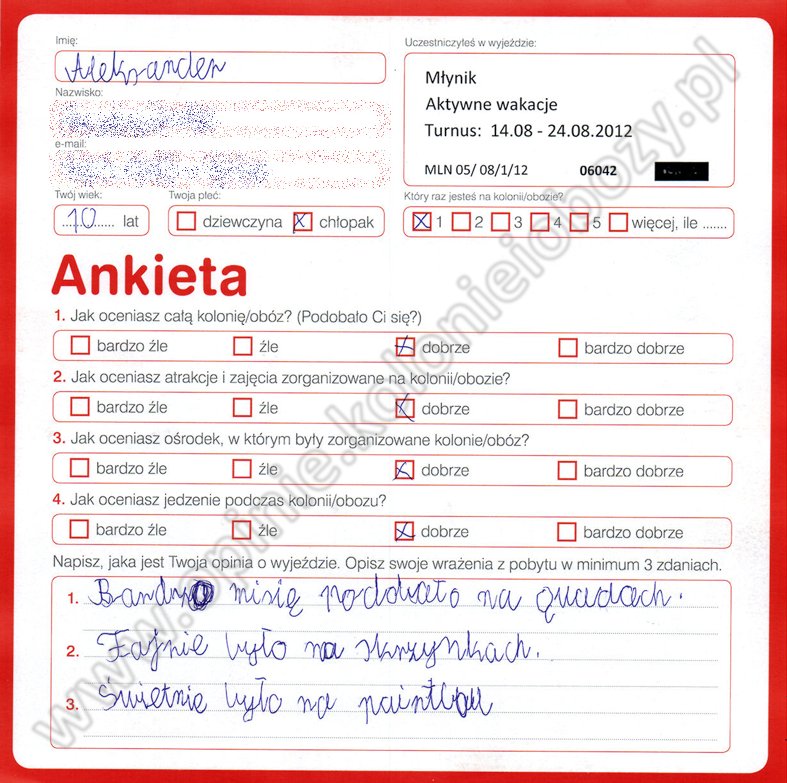 Imię:
Aleksander
Uczestniczyłeś w wyjeździe:
Młynik
Aktywne wakacje
Turnus: 14.08 - 24.08.2012
MLN 05/ 08/1/12 06042
Nazwisko:
e-mail:
Twój wiek:
10 lat
Twoja płeć:
dziewczyna chłopak
Który raz jesteś na kolonii/obozie?
1 2 3 4 5 więcej, ile .......
Ankieta
1. Jak oceniasz całą kolonię/obóz? (Podobało Ci się?)
bardzo źle źle dobrze bardzo dobrze
2. Jak oceniasz atrakcje i zajęcia zorganizowane na kolonii/obozie?
bardzo źle źle dobrze bardzo dobrze
3. Jak oceniasz ośrodek, w którym były zorganizowane kolonie/obóz?
bardzo źle źle dobrze bardzo dobrze
4. Jak oceniasz jedzenie podczas kolonii/obozu?
bardzo źle źle dobrze bardzo dobrze
Napisz, jaka jest Twoja opinia o wyjeździe. Opisz swoje wrażenia z pobytu w minimum 3 zdaniach.
1. misię na quadach.
2. Fajnie było na skrzynkach.
3. Świetnie było na
www.opinie.kolonieiobozy.pl